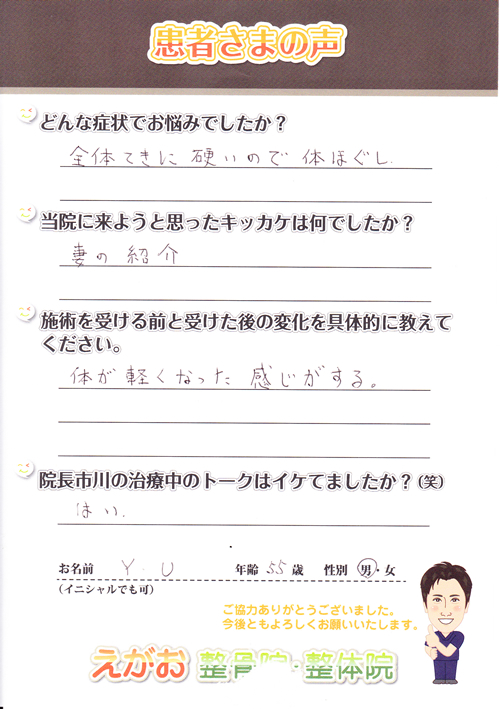 患者さまの声
どんな症状でお悩みでしたか？
全体てきに 硬いので 体ほぐし.
当院に来ようと思ったキッカケは何でしたか？
妻の 紹介
施術を受ける前と受けた後の変化を具体的に教えて
ください。
体が 軽くなった 感じがする。
院長市川の治療中のトークはイケてましたか？(笑)
はい.
お名前 Y. U 年齢 55 歳 性別 男・女
(イニシャルでも可)
ご協力ありがとうございました。
今後ともよろしくお願いいたします。
えがお 整骨院・整体院